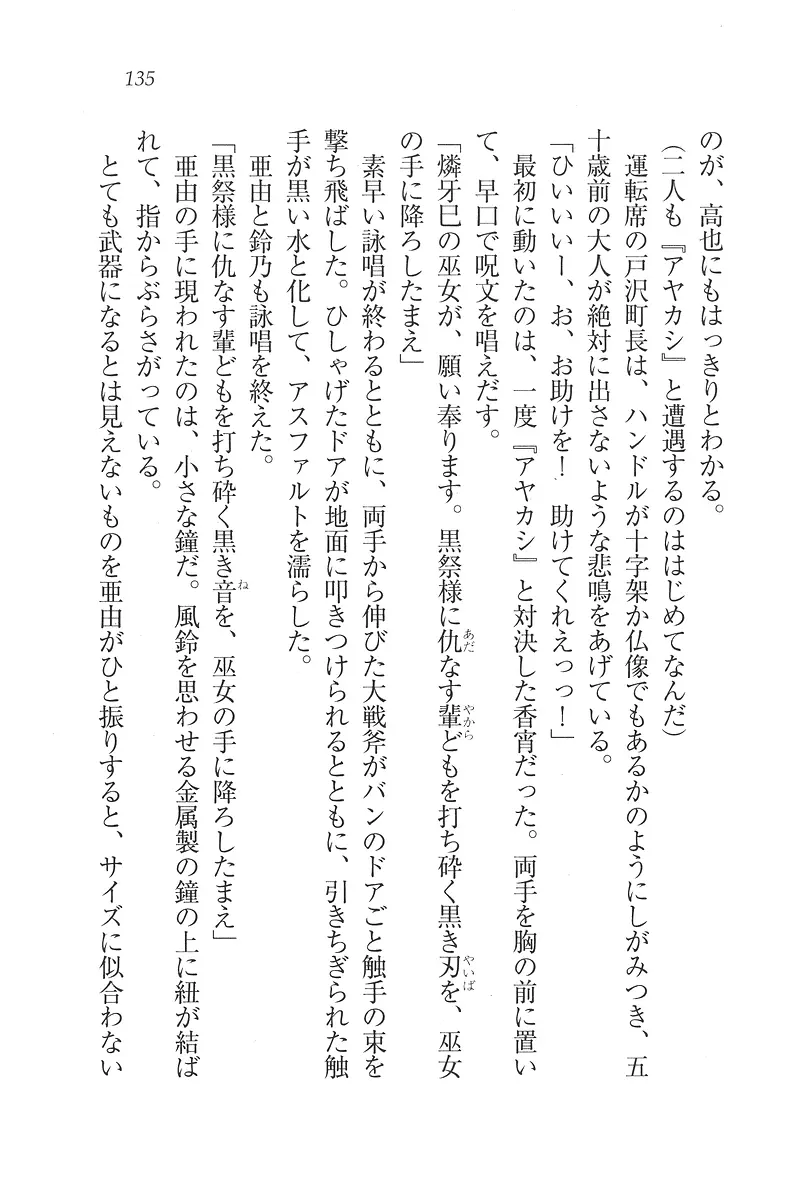 135
のが、高也にもはっきりとわかる。
(二人も『アヤカシ』と遭遇するのははじめてなんだ)
　運転席の戸沢町長は、ハンドルが十字架か仏像でもあるかのようにしがみつき、五
十歳前の大人が絶対に出さないような悲鳴をあげている。
「ひいいいー、お、お助けを！　助けてくれえっっ！」
　最初に動いたのは、一度『アヤカシ』と対決した香宵だった。両手を胸の前に置い
て、早口で呪文を唱えだす。
「燐牙巳の巫女が、願い奉ります。黒祭様に仇なす輩どもを打ち砕く黒き刃を、巫女
あだ
やから
やいば
の手に降ろしたまえ」
　素早い詠唱が終わるとともに、両手から伸びた大戦斧がバンのドアごと触手の束を
撃ち飛ばした。ひしゃげたドアが地面に叩きつけられるとともに、引きちぎられた触
手が黒い水と化して、アスファルトを濡らした。
　亜由と鈴乃も詠唱を終えた。
「黒祭様に仇なす輩どもを打ち砕く黒き音を、巫女の手に降ろしたまえ」
ね
　亜由の手に現われたのは、小さな鐘だ。風鈴を思わせる金属製の鐘の上に紐が結ば
れて、指からぶらさがっている。
　とても武器になるとは見えないものを亜由がひと振りすると、サイズに似合わない